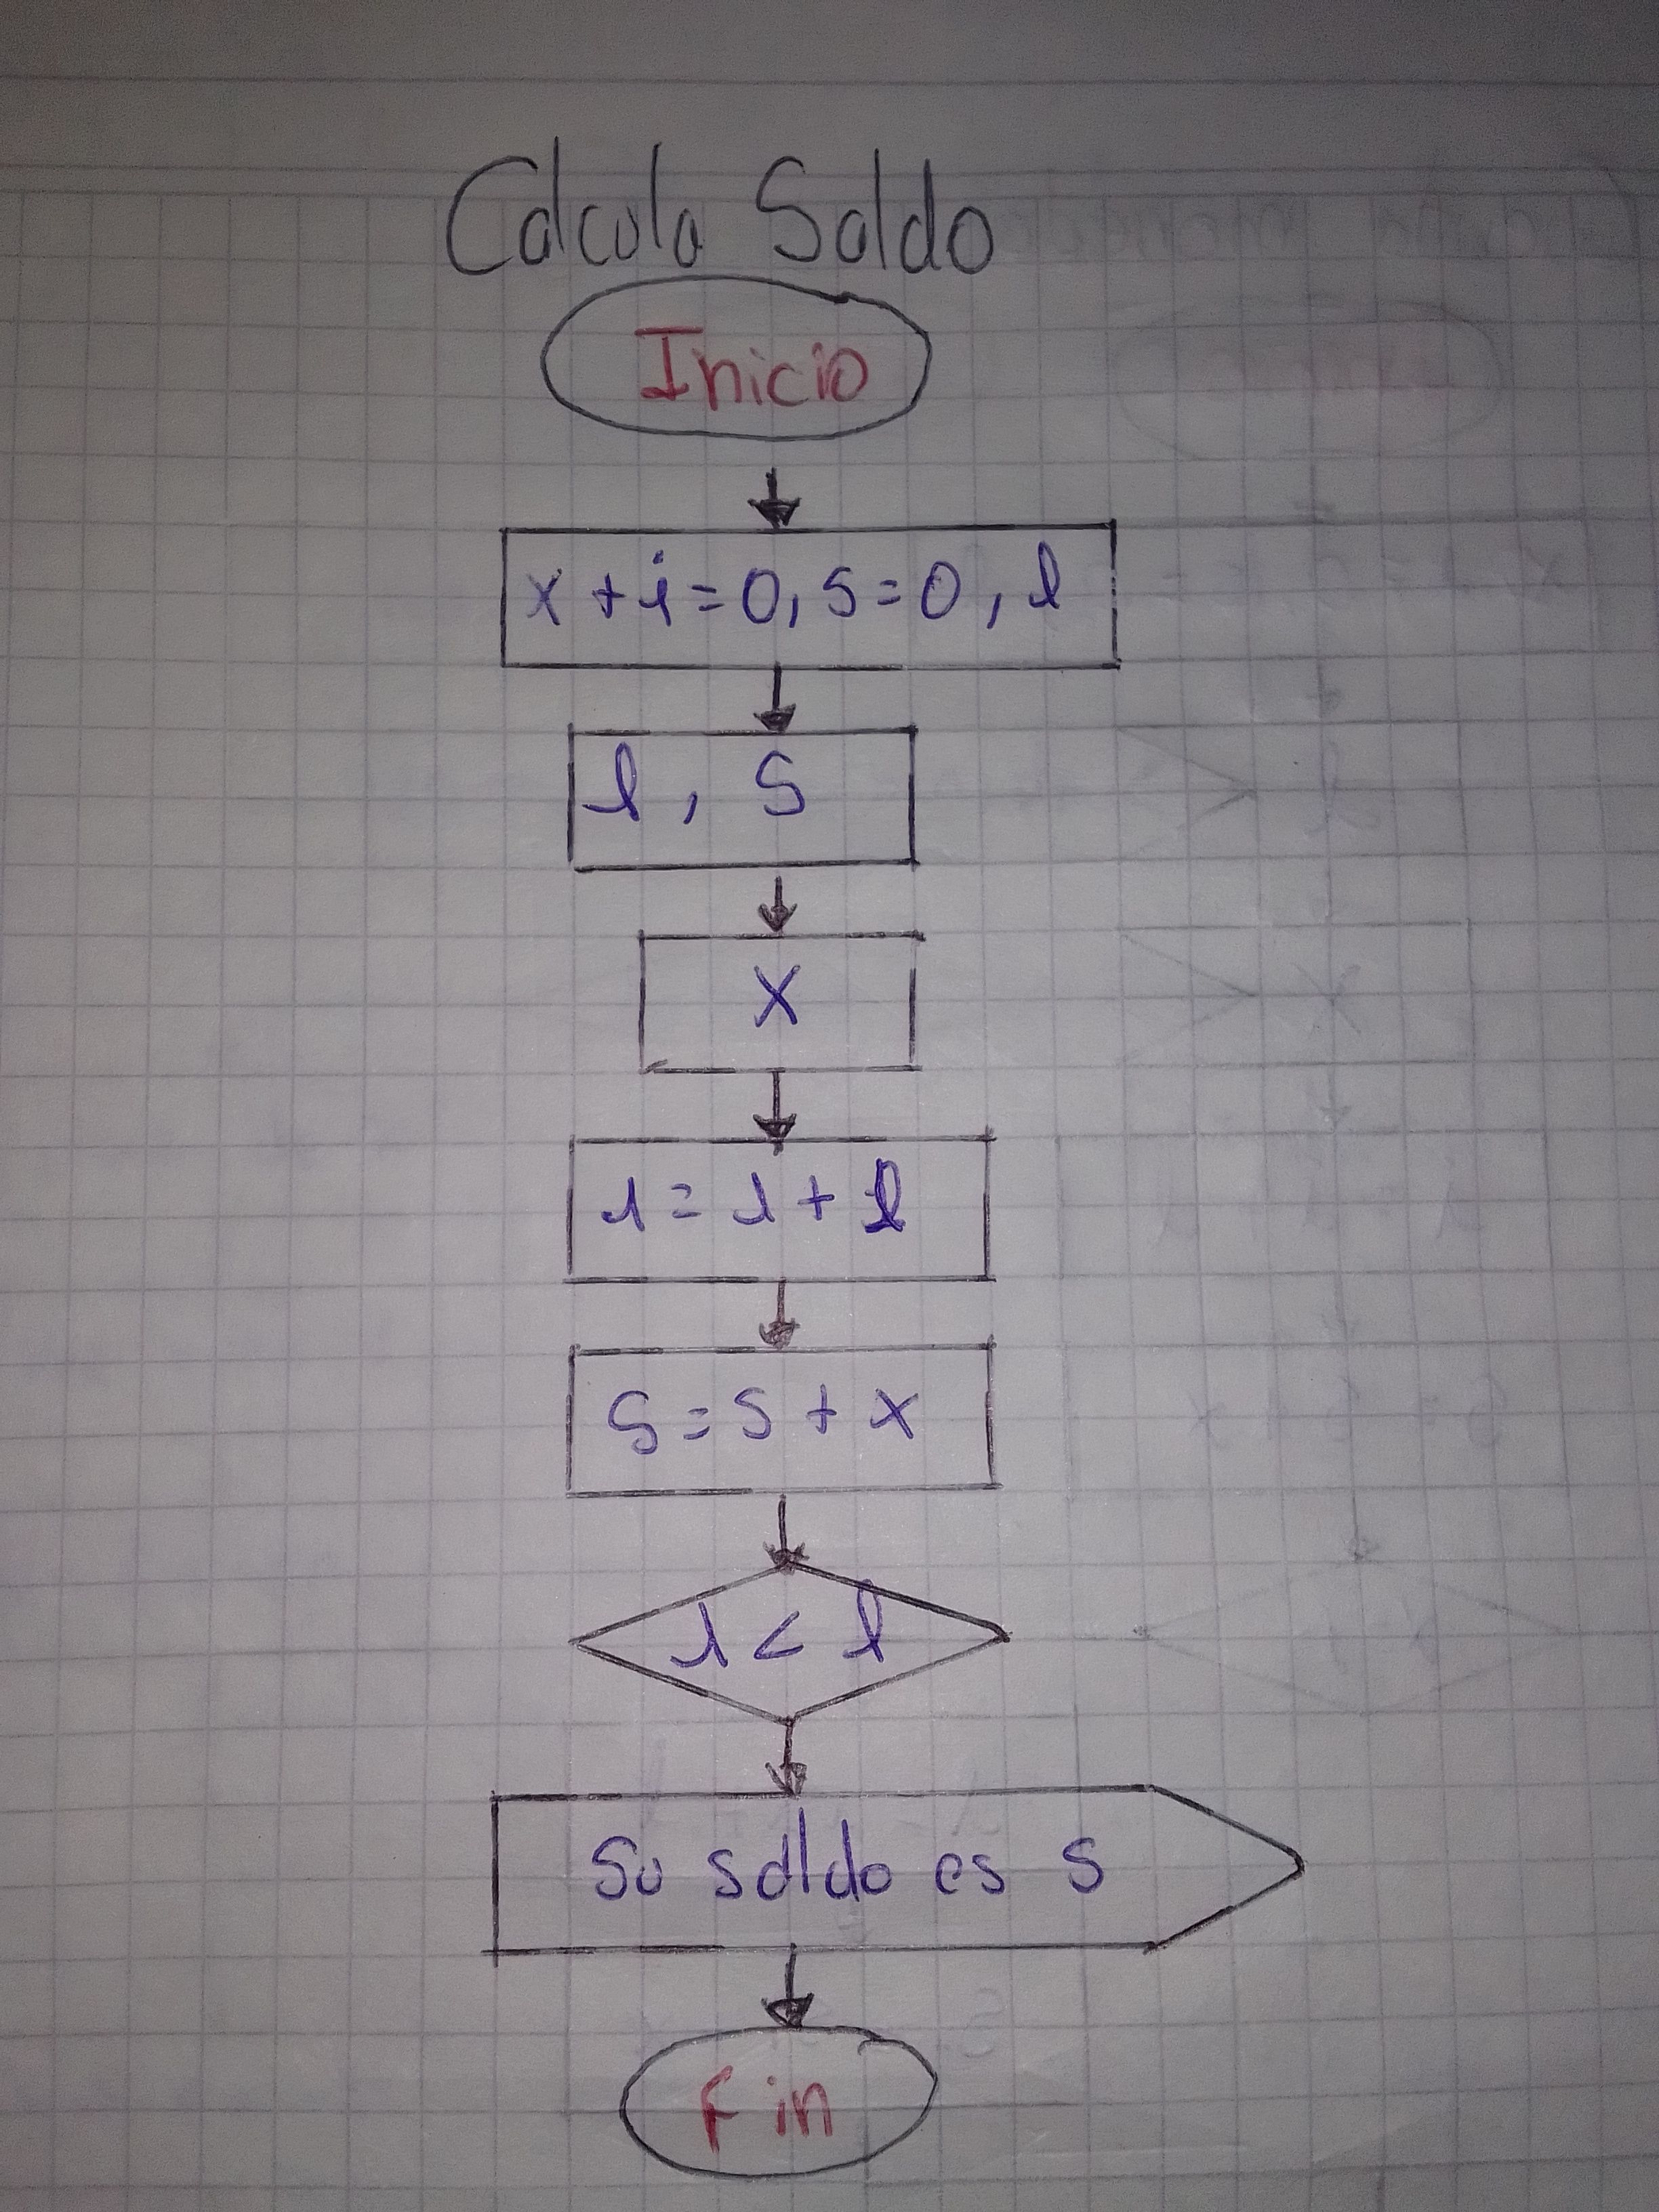 Calcula Saldo
Inicio
x + i = 0, s = 0, l
l, S
X
i = i + l
S = S + x
i < l
Su saldo es S
Fin